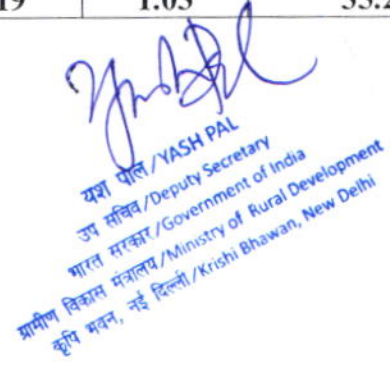 19 1.03
Yash Pal
यश पॉल/YASH PAL
उप सचिव/Deputy Secretary
भारत सरकार/Government of India
ग्रामीण विकास मंत्रालय/Ministry of Rural Development
कृषि भवन, नई दिल्ली/Krishi Bhawan, New Delhi